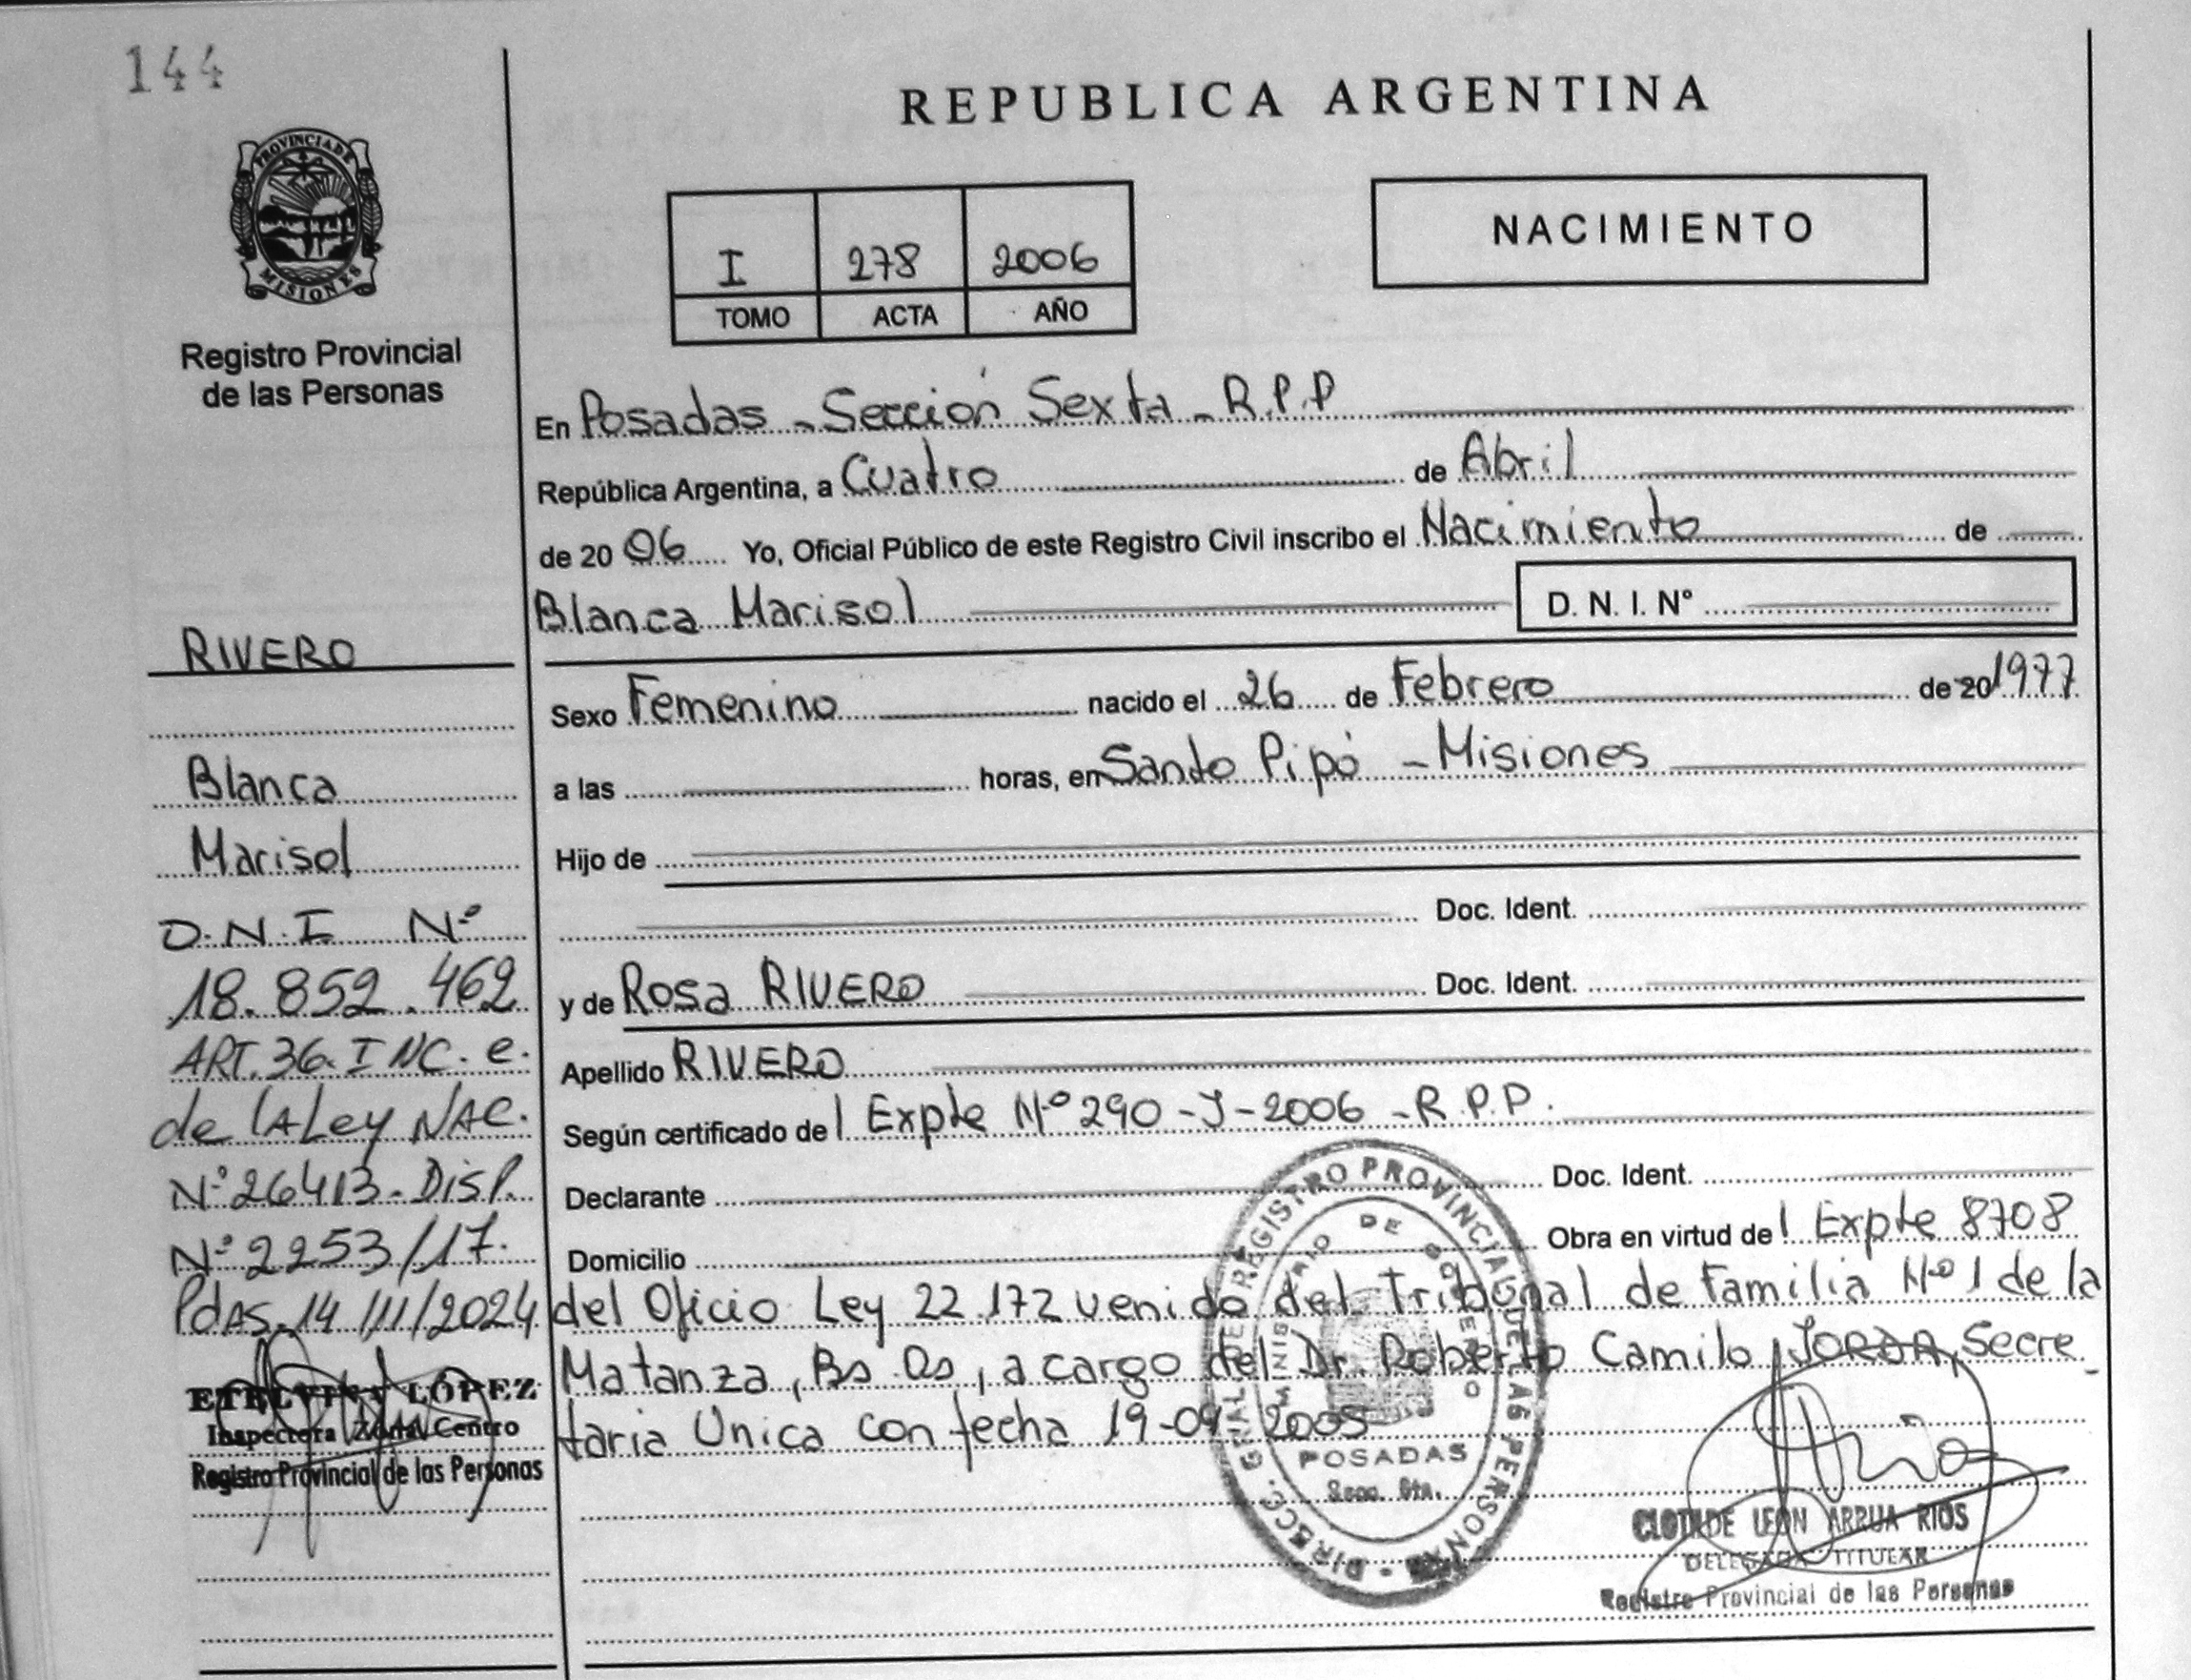 144
REPUBLICA ARGENTINA
PROVINCIA DE
MISIONES
Registro Provincial
de las Personas
I 278 2006
TOMO ACTA AÑO
NACIMIENTO
En Posadas - Sección Sexta - R.P.P
República Argentina, a Cuatro de Abril
de 20 06 Yo, Oficial Público de este Registro Civil inscribo el Nacimiento de
Blanca Marisol D. N. I. N°
RIVERO
Blanca
Marisol
D.N.I Nº
18.852.462
ART.36.INC.e.
de lA Ley NAC.
Nº26413-Disp.
Nº2253/17.
PdAS.14/11/2024
ETELVINA LÓPEZ
Inspectora Zona Centro
Registro Provincial de las Personas
Sexo Femenino nacido el 26 de Febrero de 20 1977
a las horas, en Santo Pipó - Misiones
Hijo de
Doc. Ident.
y de Rosa RIVERO Doc. Ident.
Apellido RIVERO
Según certificado de l Expte Nº 290-J-2006-R.P.P.
Declarante Doc. Ident.
Domicilio Obra en virtud de l Expte 8708
del Oficio Ley 22.172 venido del Tribunal de Familia Nº 1 de la
Matanza, Bs.As, a cargo del Dr. Roberto Camilo JORDA, Secre-
taria Unica con fecha 19-09 2005
DIRECC. GRAL DE REGISTRO PROVINCIAL DE LAS PERSONAS
MINISTERIO DE GOBIERNO
POSADAS
Secc. 6ta.
CLOTILDE LEON ARRUA RIOS
DELEGADA TITULAR
Registro Provincial de las Personas